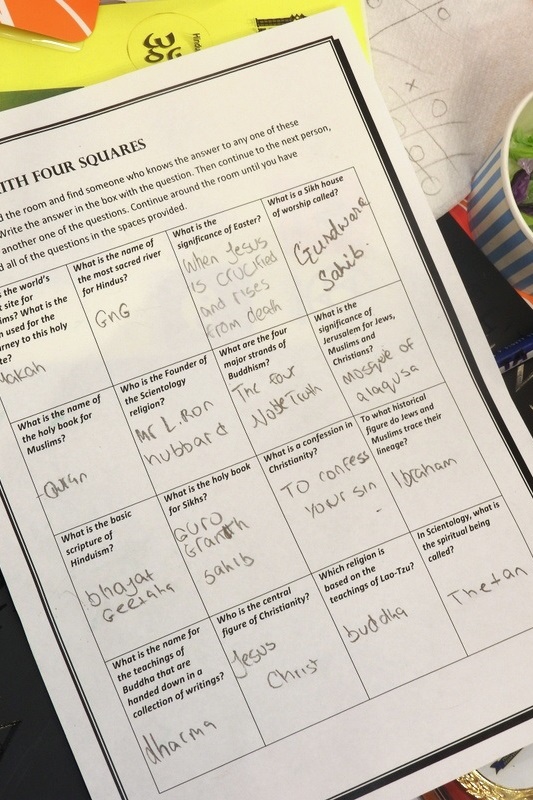 ITH FOUR SQUARES
d the room and find someone who knows the answer to any one of these
Write the answer in the box with the question. Then continue to the next person,
another one of the questions. Continue around the room until you have
d all of the questions in the spaces provided.
the world's
t site for
ims? What is the
used for the
rney to this holy
te?
akah
What is the name of
the most sacred river
for Hindus?
GnG
What is the
significance of Easter?
When Jesus
is crucified
and rises
from death
What is a Sikh house
of worship called?
Gurdwara
Sahib.
What is the name of
the holy book for
Muslims?
-Quran
Who is the Founder of
the Scientology
religion?
Mr L.Ron
hubbard
What are the four
major strands of
Buddhism?
The Four
Noble Truth
What is the
significance of
Jerusalem for Jews,
Muslims and
Christians?
mosque of
alaqusa
What is the basic
scripture of
Hinduism?
bhagat
Geetaha
What is the holy book
for Sikhs?
Guro
Granth
sahib
What is a confession in
Christianity?
To confess
your sin
To what historical
figure do Jews and
Muslims trace their
lineage?
Ibraham
What is the name for
the teachings of
Buddha that are
handed down in a
collection of writings?
dharma
Who is the central
figure of Christianity?
Jesus
Christ
Which religion is
based on the
teachings of Lao-Tzu?
buddha
In Scientology, what is
the spiritual being
called?
Thetan